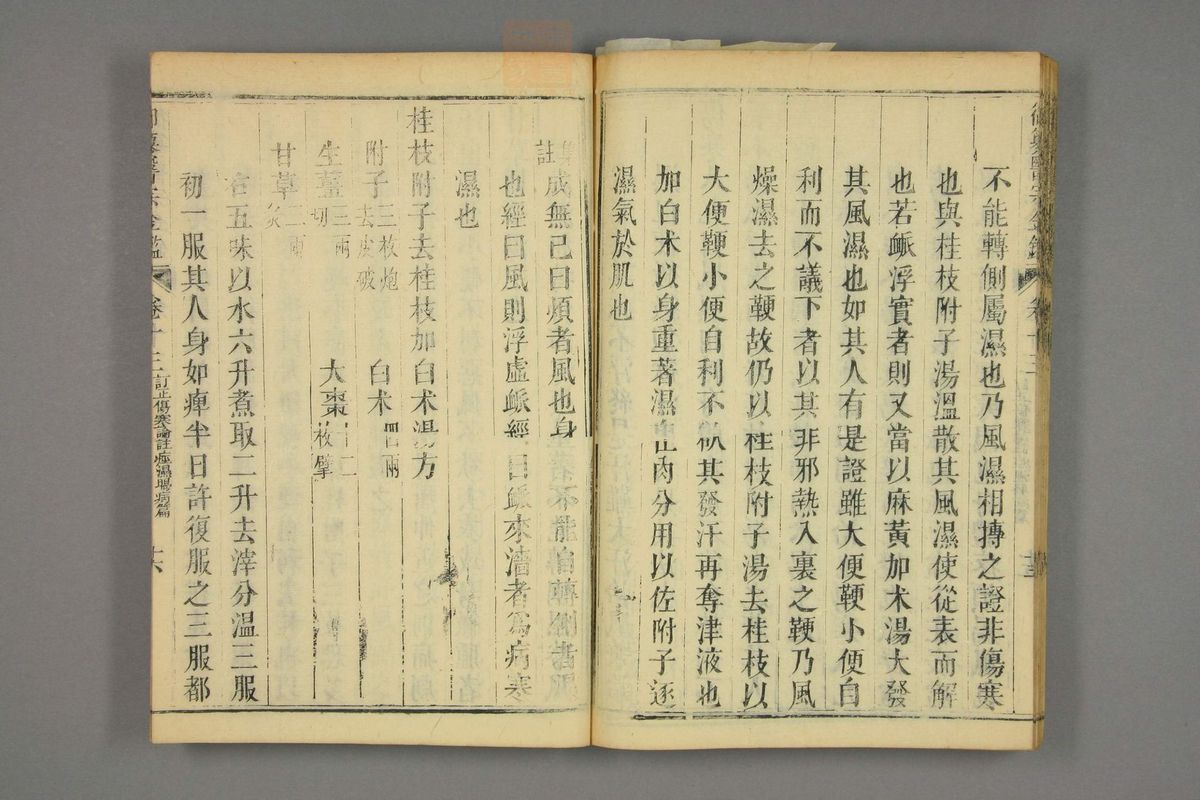 不能轉側屬濕也乃風濕相摶之證非傷寒
也與桂枝附子湯溫散其風濕使從表而解
也若脈浮實者則又當以麻黃加朮湯大發
其風濕也如其人有是證雖大便鞕小便自
利而不議下者以其非邪熱入裏之鞕乃風
燥濕去之鞕故仍以桂枝附子湯去桂枝以
大便鞕小便自利不欲其發汗再奪津液也
加白朮以身重著濕肉分用以佐附子逐
濕氣於肌也
註成無己曰煩者風也身不能自轉側者
也經曰風則浮虛脈經曰脈來濇者為病寒
濕也
桂枝附子去桂枝加白朮湯方
附子三枚炮去皮破 白朮四兩
生薑三兩切 大棗十二枚擘
甘草二兩炙
右五味以水六升煮取二升去滓分溫三服
初一服其人身如痺半日許復服之三服都
御纂醫宗金鑑 卷十三 訂正傷寒論註痙濕暍病篇